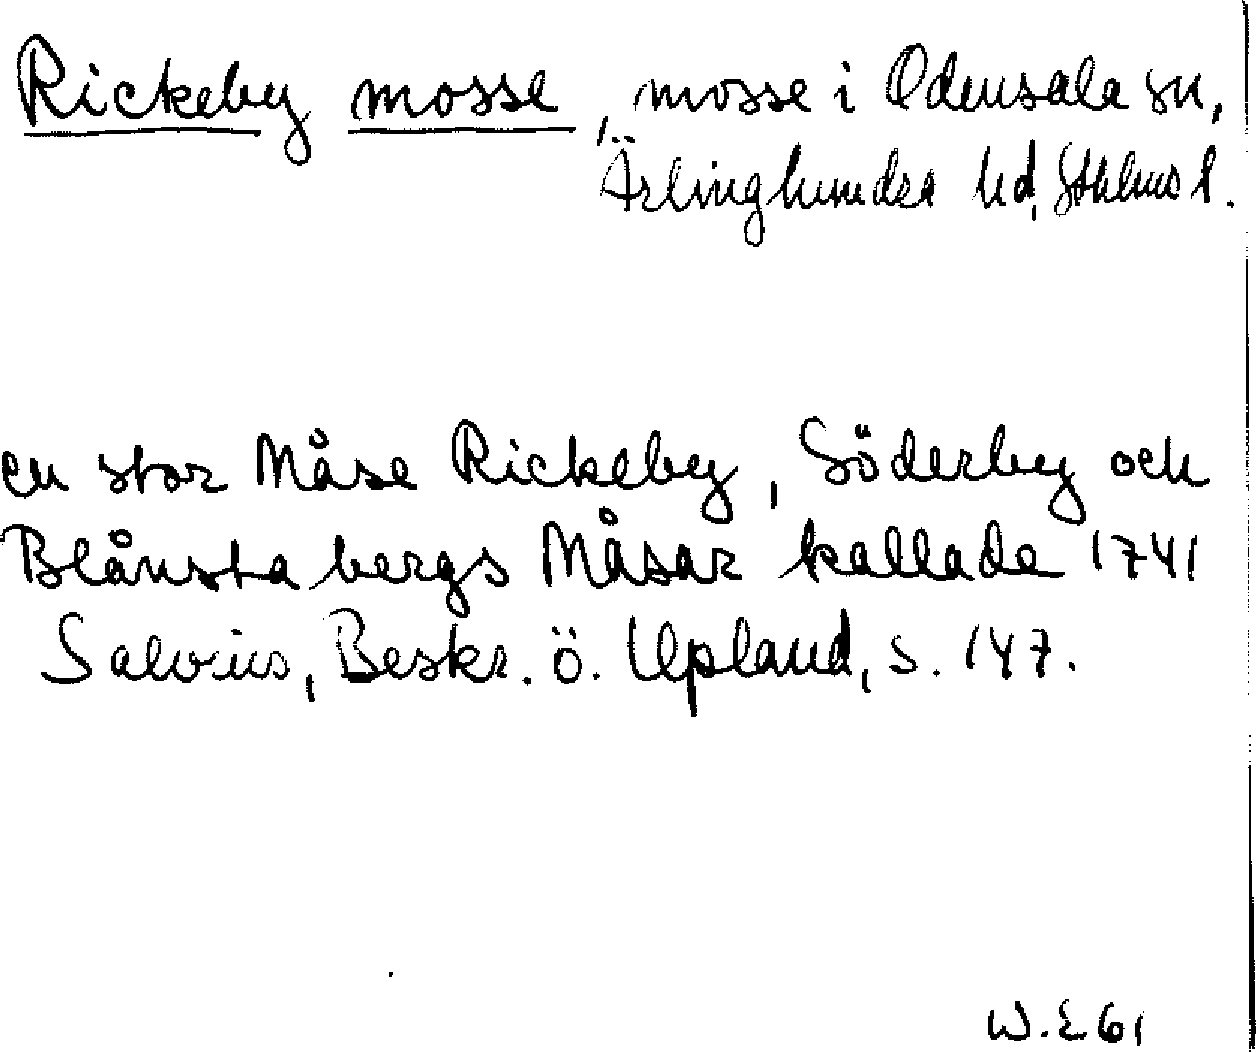 Rickeby mosse, mosse i Odensala sn,
Ärlinghundra hd, Sthlms l.
en stor Måse Rickeby, Söderby och
Blånsta bergs Måsar kallade 1741
Salvius, Beskr. ö. Upland, s. 147.
W.E 61